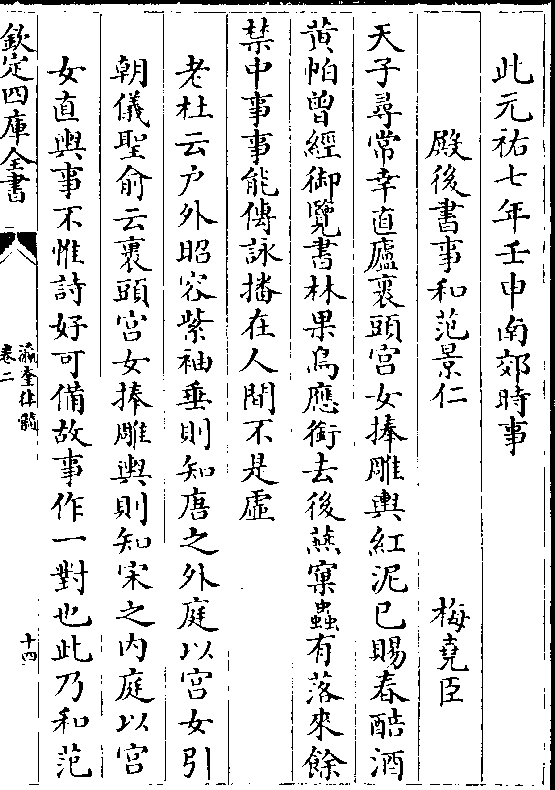 此元祐七年壬申南郊時事
殿後書事和范景仁 梅堯臣
天子尋常幸直廬裹頭宮女捧雕輿紅泥已賜春醅酒
黄帕曽經御覽書林果烏應銜去後燕窠蟲有落來餘
禁中事事能傳詠播在人間不是虛
老杜云户外昭容紫袖垂則知唐之外庭以宮女引
朝儀聖俞云裹頭宮女捧雕輿則知宋之内庭以宮
女直輿事不惟詩好可備故事作一對也此乃和范
欽定四庫全書
瀛奎律髓
卷二
十四